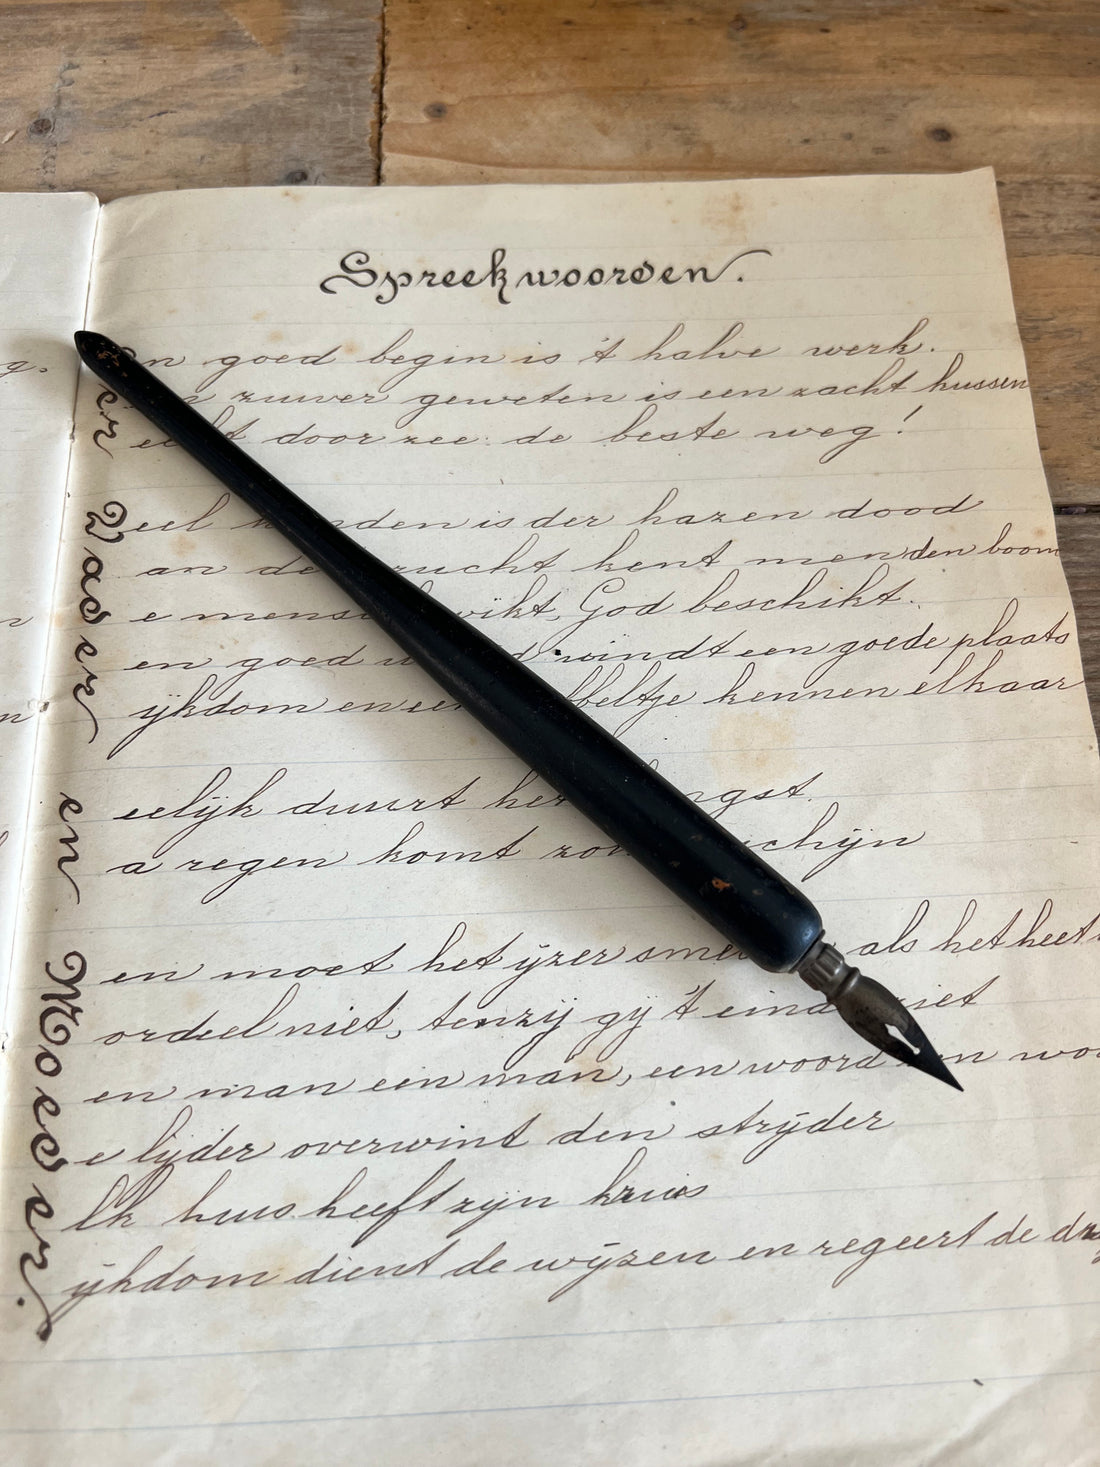 Spreekwoorden.
En goed begin is 't halve werk.
zuiver geweten is een zacht kussen
er
door zee de beste weg!
Veel is der hazen dood
an de vrucht kent men den boom
e wikt, God beschikt.
en goed vindt een goede plaats
ijkdom en een kennen elkaar
eelijk duurt het langst.
a regen komt zonneschijn
en moet het ijzer als het heet
ordeel niet, tenzij gij 't eind ziet
en man een man, een woord
e lijder overwint den strijder
lk huis heeft zijn kruis
ijkdom dient de wijzen en regeert de
Vader en Moeder.